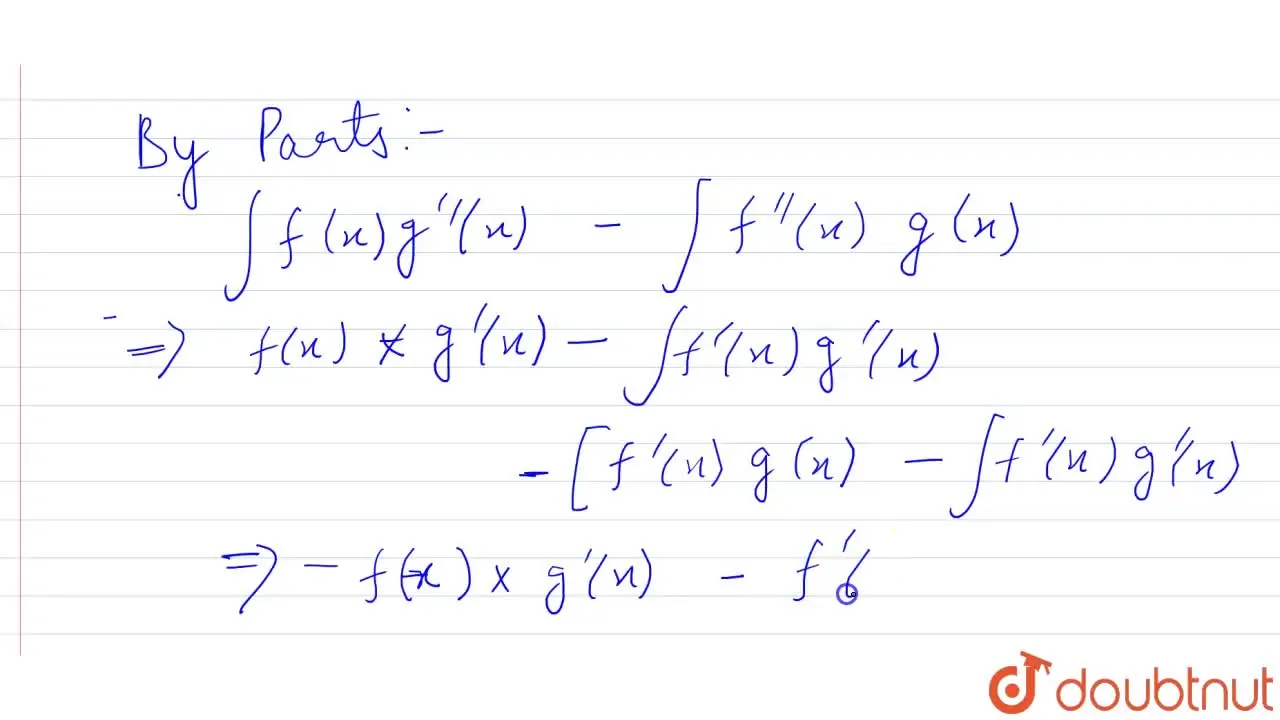 By Parts:-
∫ f(x) g''(x) - ∫ f''(x) g(x)
=> f(x) × g'(x) - ∫ f'(x) g'(x)
- [ f'(x) g(x) - ∫ f'(x) g'(x)
=> - f(x) × g'(x) - f'(
doubtnut